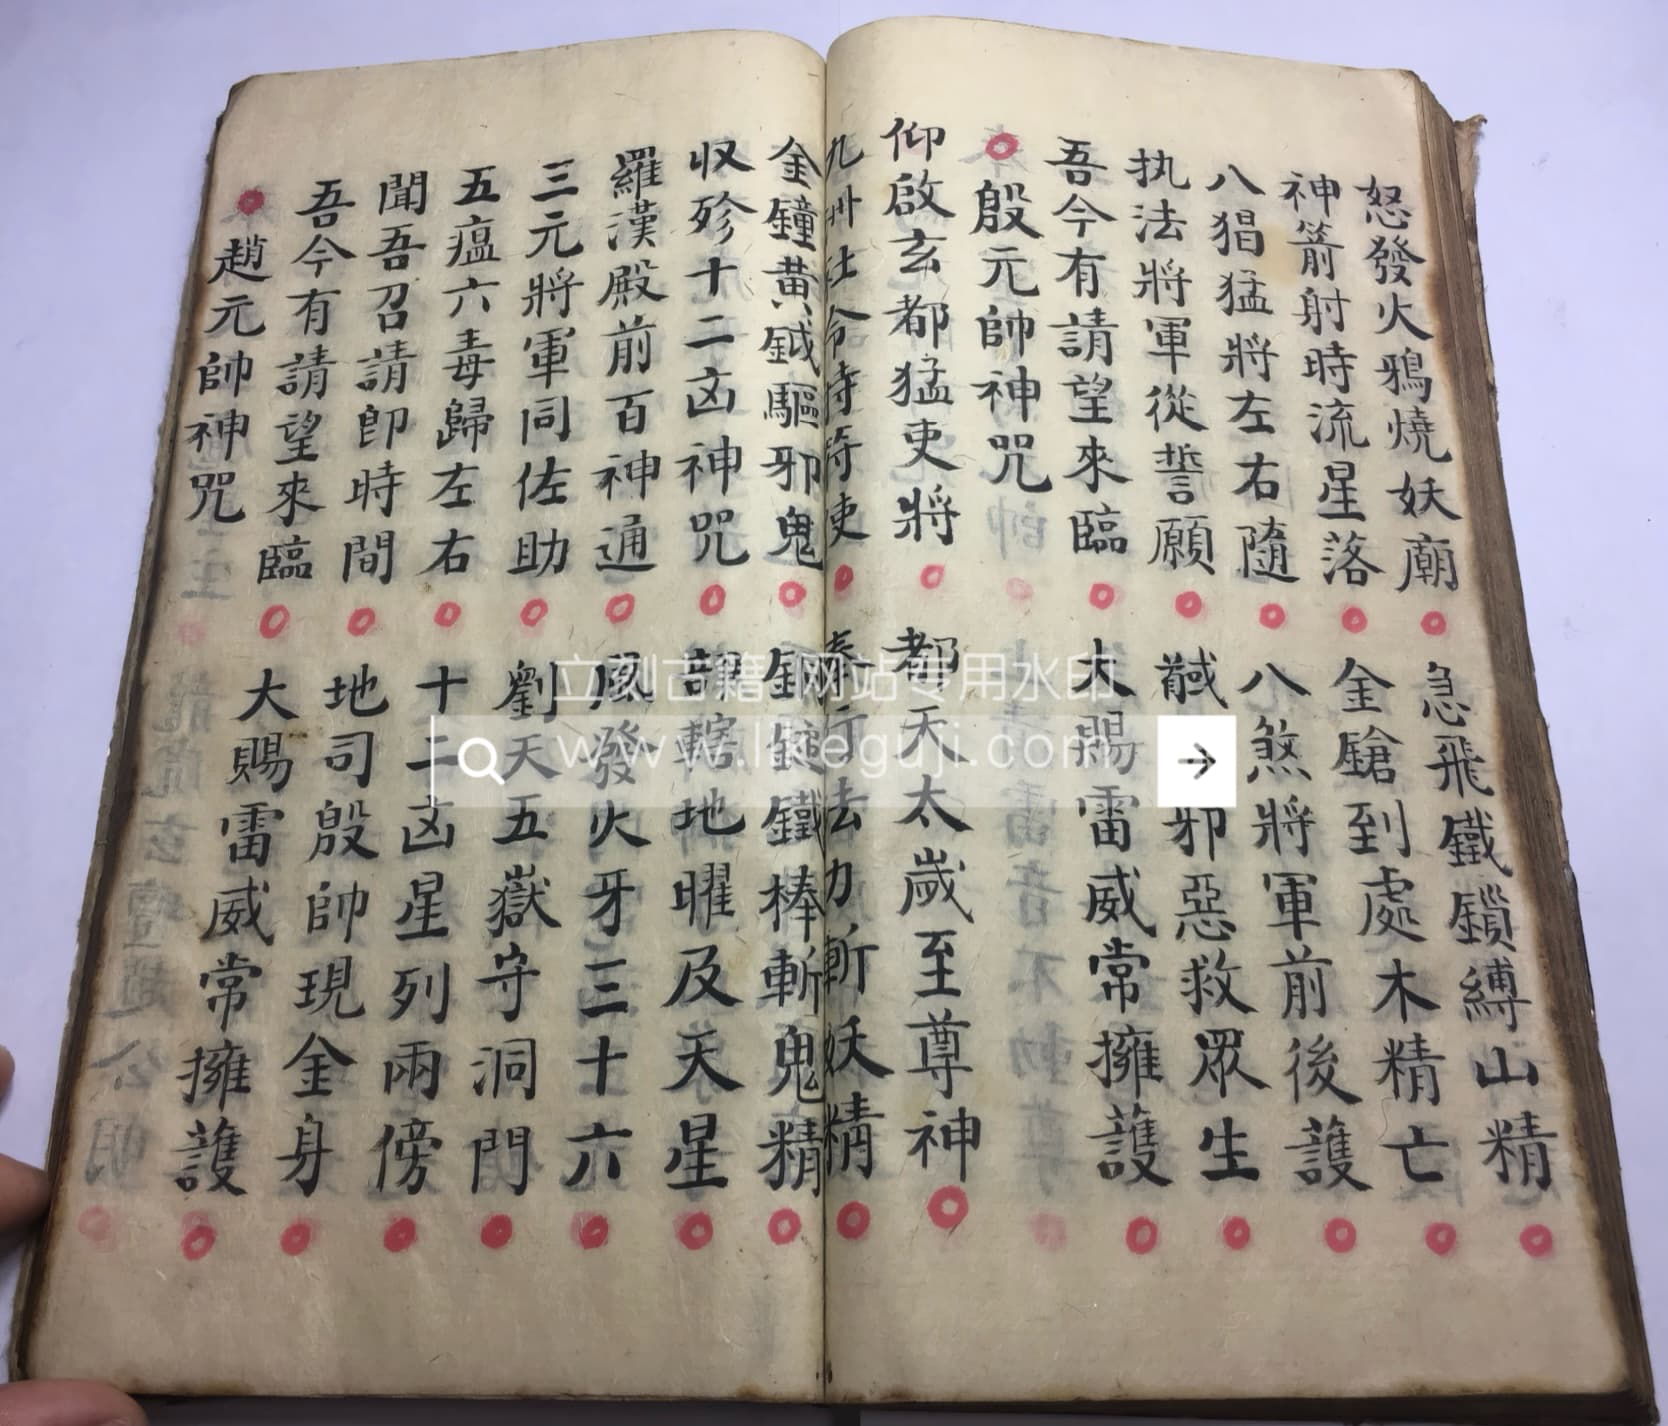 怒發火鴉燒妖廟 急飛鐵鎖縛山精
神箭射時流星落 金鎗到處木精亡
八猖猛將左右隨 八煞將軍前後護
执法將軍從誓願 馘邪惡救眾生
吾今有請望來臨 大賜雷威常擁護
殷元帥神咒
仰啟玄都猛吏將 都天太歲至尊神
九州社令持符使 奉行法力斬妖精
金鐘黃鉞驅邪鬼 鐵棒斬鬼精
収殄十二凶神咒 轄地曜及天星
羅漢殿前百神通 風發火牙三十六
三元將軍同佐助 劉天五嶽守洞門
五瘟六毒歸左右 十二凶星列兩傍
聞吾召請即時間 地司殷帥現金身
吾今有請望來臨 大賜雷威常擁護
趙元帥神咒
立刻古籍 网站专用水印
www.likeguji.com